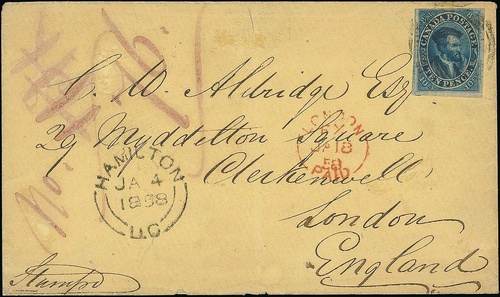 CANADA POSTAGE
TEN PENCE
C. W. Aldridge Esq
29 Myddelton Square
Clerkenwell
London
England
HAMILTON
JA 4
1858
U.C
LONDON
JA 18
58
PAID
No.
Stamped